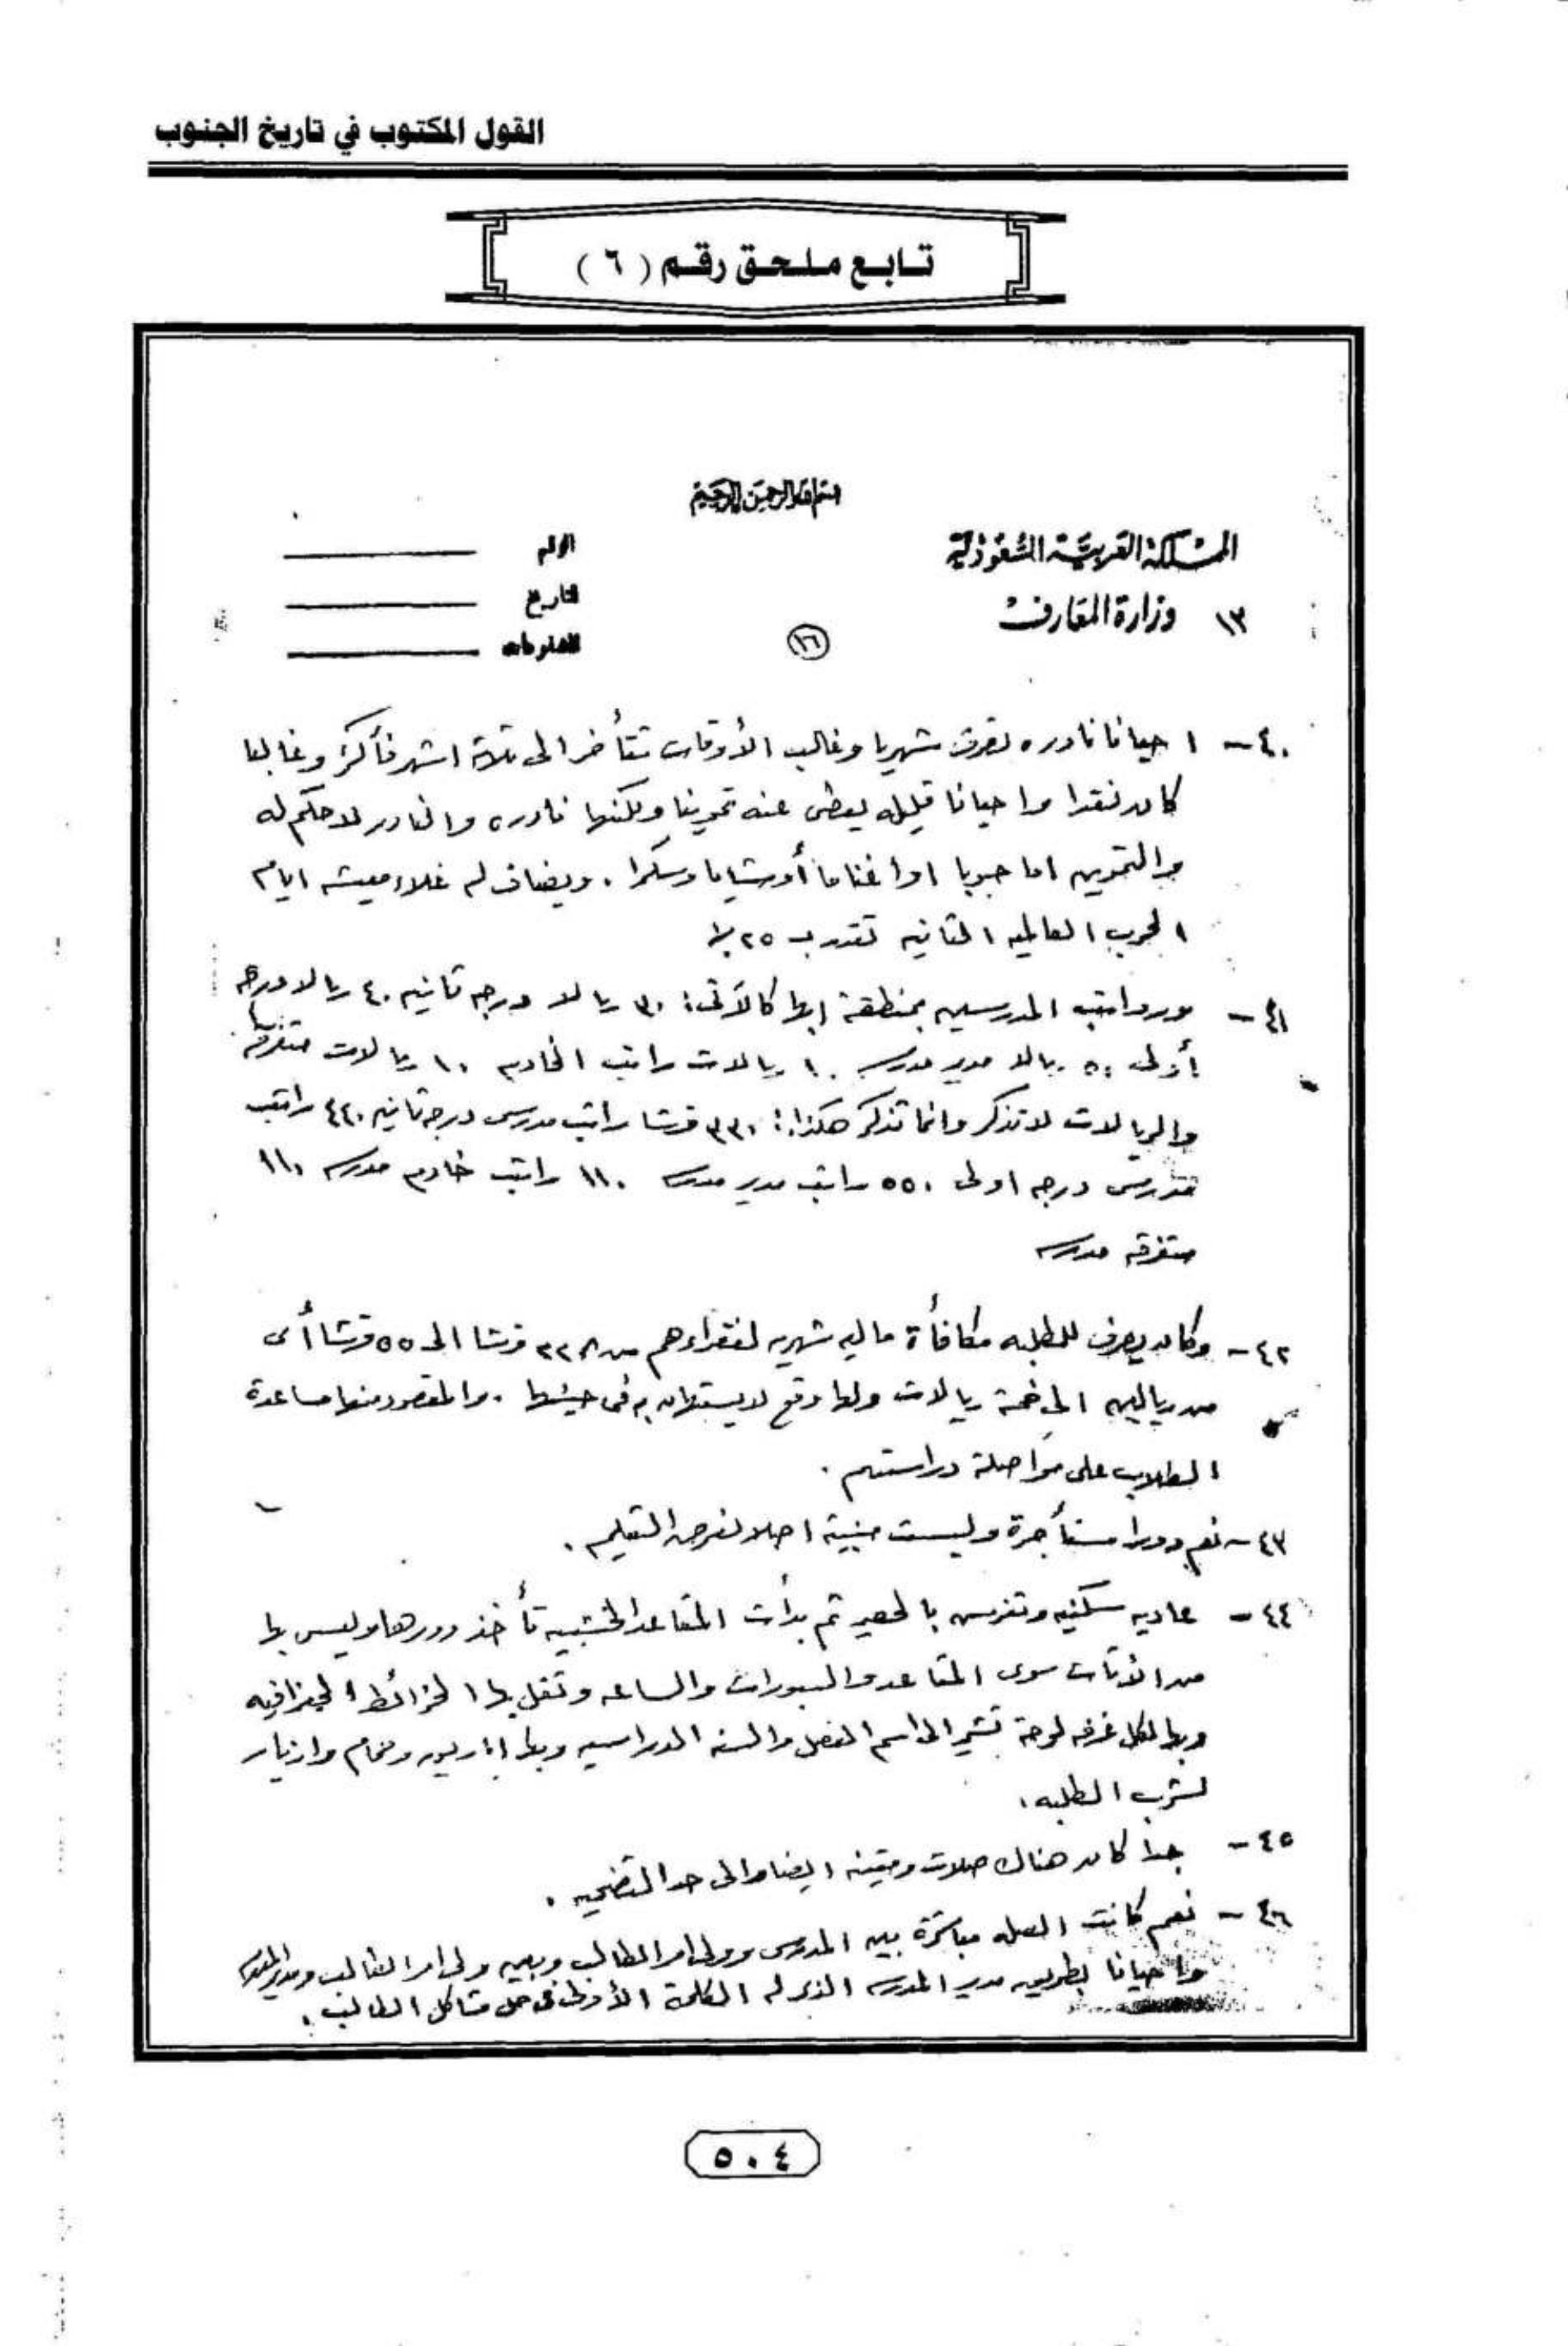 القول المكتوب في تاريخ الجنوب
تابع ملحق رقم ( ٦ )
بسم الله الرحمن الرحيم
المملكة العربية السعودية
الرقم
١٣ وزارة المعارف
التاريخ
١٦
٤٠ - احيانا نادره تصرف شهريا وغالب الأوقات تتأخر الى ثلاثة اشهر فأكثر وغالبا
كان نقدا واحيانا قليله يعطى عنه تموينا ولكنها نادره والنادر لا حكم له
والتموين اما حبوبا او اغناما أو شايا وسكرا . ويضاف له غلاء معيشه ايام
الحرب العالميه الثانيه تقدر بـ ٢٥٪
٤١ - ورواتب المدرسين بمنطقة ابها كالآتى : ٣٠ ريالا درجه ثانيه ٤٠ ريالا درجه
أولى ٥٠ ريالا مدير مدرسه ١٠ ريالات راتب الخادم ١٠ ريالات متفرقه
والريالات لا تذكر وانما تذكر هكذا : ٣٣٠ قرشا راتب مدرس درجه ثانيه ٤٤٠ راتب
مدرس درجه اولى ٥٥٠ راتب مدير مدرسه ١١٠ راتب خادم مدرسه ١١٠
متفرقه مدرسه
٤٢ - وكان يصرف للطلبه مكافأة ماليه شهريه لفقراءهم من ٢٢ قرشا الى ٥٥ قرشا أى
من ريالين الى خمسة ريالات ولها وقع لا يستهان به فى حينها . والمقصود منها مساعدة
الطلاب على مواصلة دراستهم .
٤٣ - نعم دورا مستأجرة وليست مبنية اصلا لغرض التعليم .
٤٤ - عاديه سكنيه وتفرش بالحصير ثم بدأت المقاعد الخشبيه تأخذ دورها وليس بها
من الأثاث سوى المقاعد والسبورات والساعه وتقل بها الخرائط الجغرافيه
وبها لكل غرفه لوحة تشير الى اسم الفصل والسنه الدراسيه وبها وحمام وازيار
لشرب الطلبه .
٤٥ - جدا كان هناك صلات ومتينه ايضا والى حد التضحيه .
٤٦ - نعم كانت الصله مباشرة بين المدرس وولى امر الطالب وبين ولى امر الطالب ومدير المدرسه
واحيانا بطريق مدير المدرسه الذى له الكلمة الأولى فى حل مشاكل الطالب .
٥٠٤